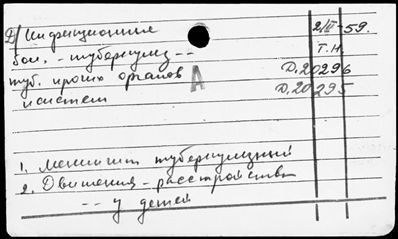 D) Инфекционные 2/III-59.
бол. - туберкулез -- Т.Н.
туб. проч. органов D.20296
и систем A D.20295
1. Менингит туберкулезный
2. Движения - расстройства
-- у детей